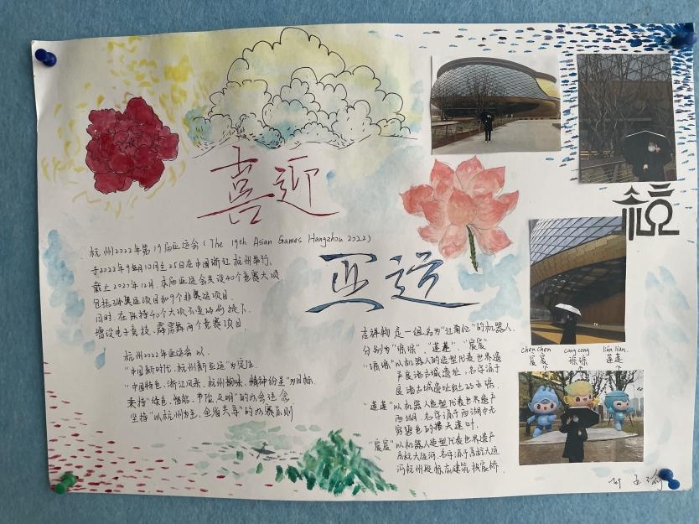 喜迎
亚运
杭州2022年第19届亚运会（The 19th Asian Games Hangzhou 2022）
于2022年9月10日至25日在中国浙江杭州举行，
截止2021年12月，本届亚运会共设40个竞赛大项
同时，在保持40个大项不变的前提下，
增设电子竞技、霹雳舞两个竞赛项目
杭州2022年亚运会以
"中国新时代·杭州新亚运"为定位
"中国特色、浙江风采、杭州韵味、精彩纷呈"为目标
秉持"绿色、智能、节俭、文明"的办会理念
坚持"以杭州为主，全省共享"的办赛原则
吉祥物是一组名为"江南忆"的机器人，
分别为"琮琮"、"莲莲"、"宸宸"
"琮琮"以机器人的造型代表世界遗
产良渚古城遗址，名字源于
良渚古城遗址出土的玉琮
"莲莲"以机器人造型代表世界遗产
西湖，名字源于西湖中无
穷碧色的接天莲叶
"宸宸"以机器人造型代表世界遗产
京杭大运河，名字源于京杭大运
河杭州段标志建筑拱宸桥
chen chen cong cong lian lian
宸宸 琮琮 莲莲